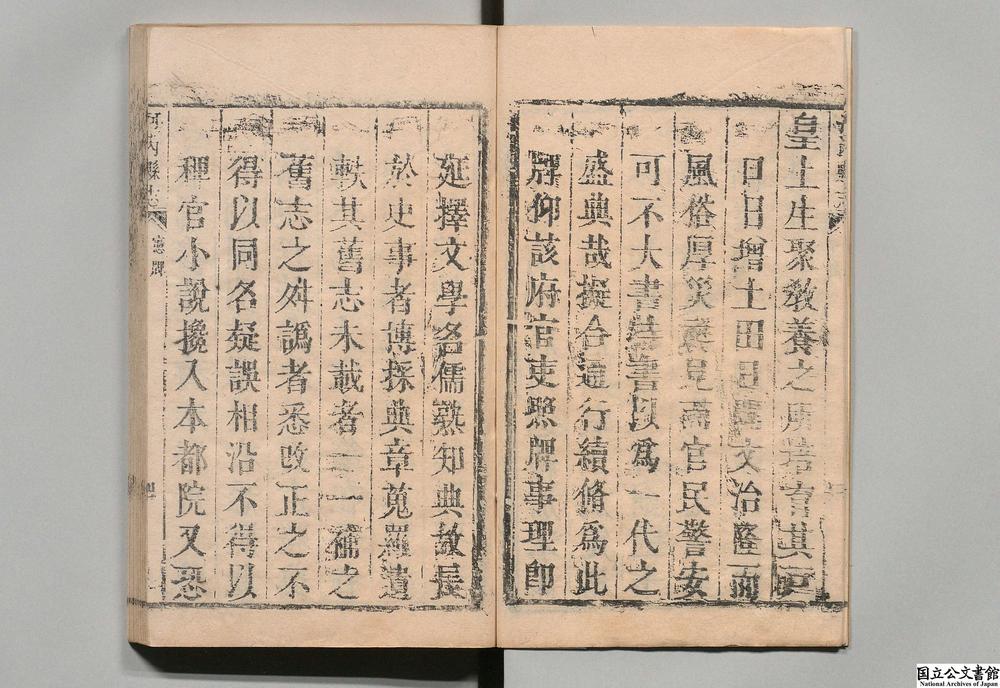 皇上生聚教養之所若育其戸
口日增土田日闢文治隆而
風俗厚災異見而官民警安
可不大書特書以爲一代之
盛典哉擬合通行續脩爲此
牌仰該府官吏照牌事理卽
延擇文學名儒熟知典故長
於史事者博採典章蒐羅遺
軼其舊志未載者一一補之
舊志之舛譌者悉改正之不
得以同名疑誤相沿不得以
稗官小說攙入本都院又恐
河內縣志
憲牌
国立公文書館
National Archives of Japan